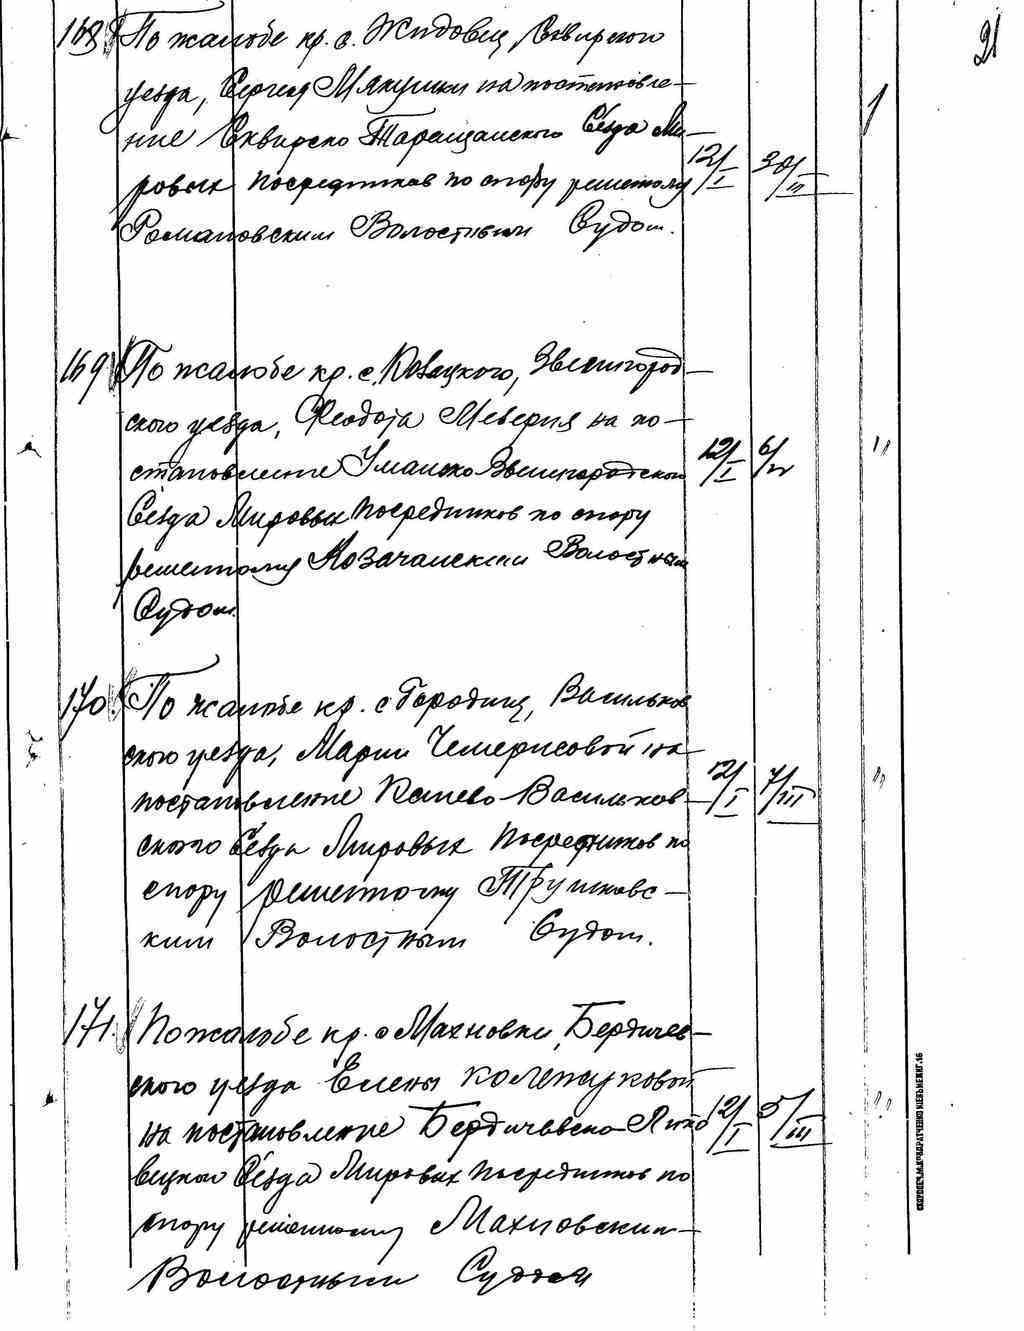 21
168 По жалобе кр. с. Жидовец, Сквирского
уезда, Сергея Мякушки на постановле-
ние Сквирско Таращанского Сезда Ми- 1
ровых посредников по спору решеному 12/I 30/III
Романовским Волостным Судом.
169 По жалобе кр. с. Козацкого, Звенигород-
ского уезда, Феодота Меверия на по-
становление Уманско Звенигородского 12/I 6/IV "
Сезда Мировых посредников по спору
решенному Козачанским Волостным
Судом.
170. По жалобе кр. с Городищ, Васильков
ского уезда, Марии Чемерисовой на
постановление Канево-Васильков- 12/I 7/III "
ского Сезда Мировых посредников по
спору решенному Трушковс-
ким Волостным Судом.
171. По жалобе кр. с Махновки, Бердичев-
ского уезда Елены
на постановление Бердичевско-Липо 12/I 5/III "
вецкого Сезда Мировых посредников по
спору решенному Махновским
Волостным Судом